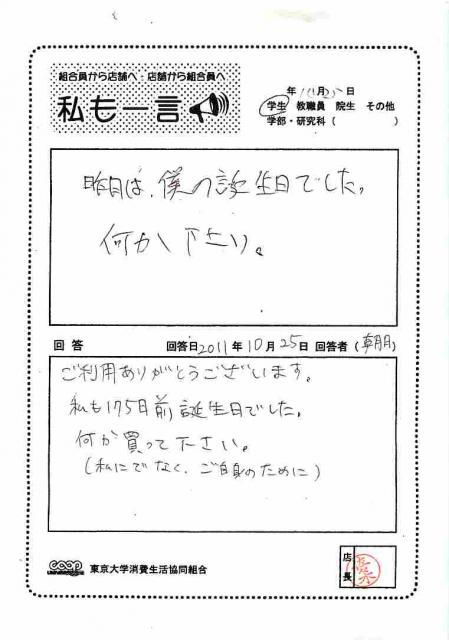 組合員から店舗へ 店舗から組合員へ
私も一言
年 月 日
学生 教職員 院生 その他
学部・研究科( )
昨日は、僕の誕生日でした。
何か下さい。
回答 回答日2011年10月25日 回答者(朝月)
ご利用ありがとうございます。
私も175日前誕生日でした。
何か買って下さい。
(私にでなく、ご自身のために)
coop 東京大学消費生活協同組合
店長